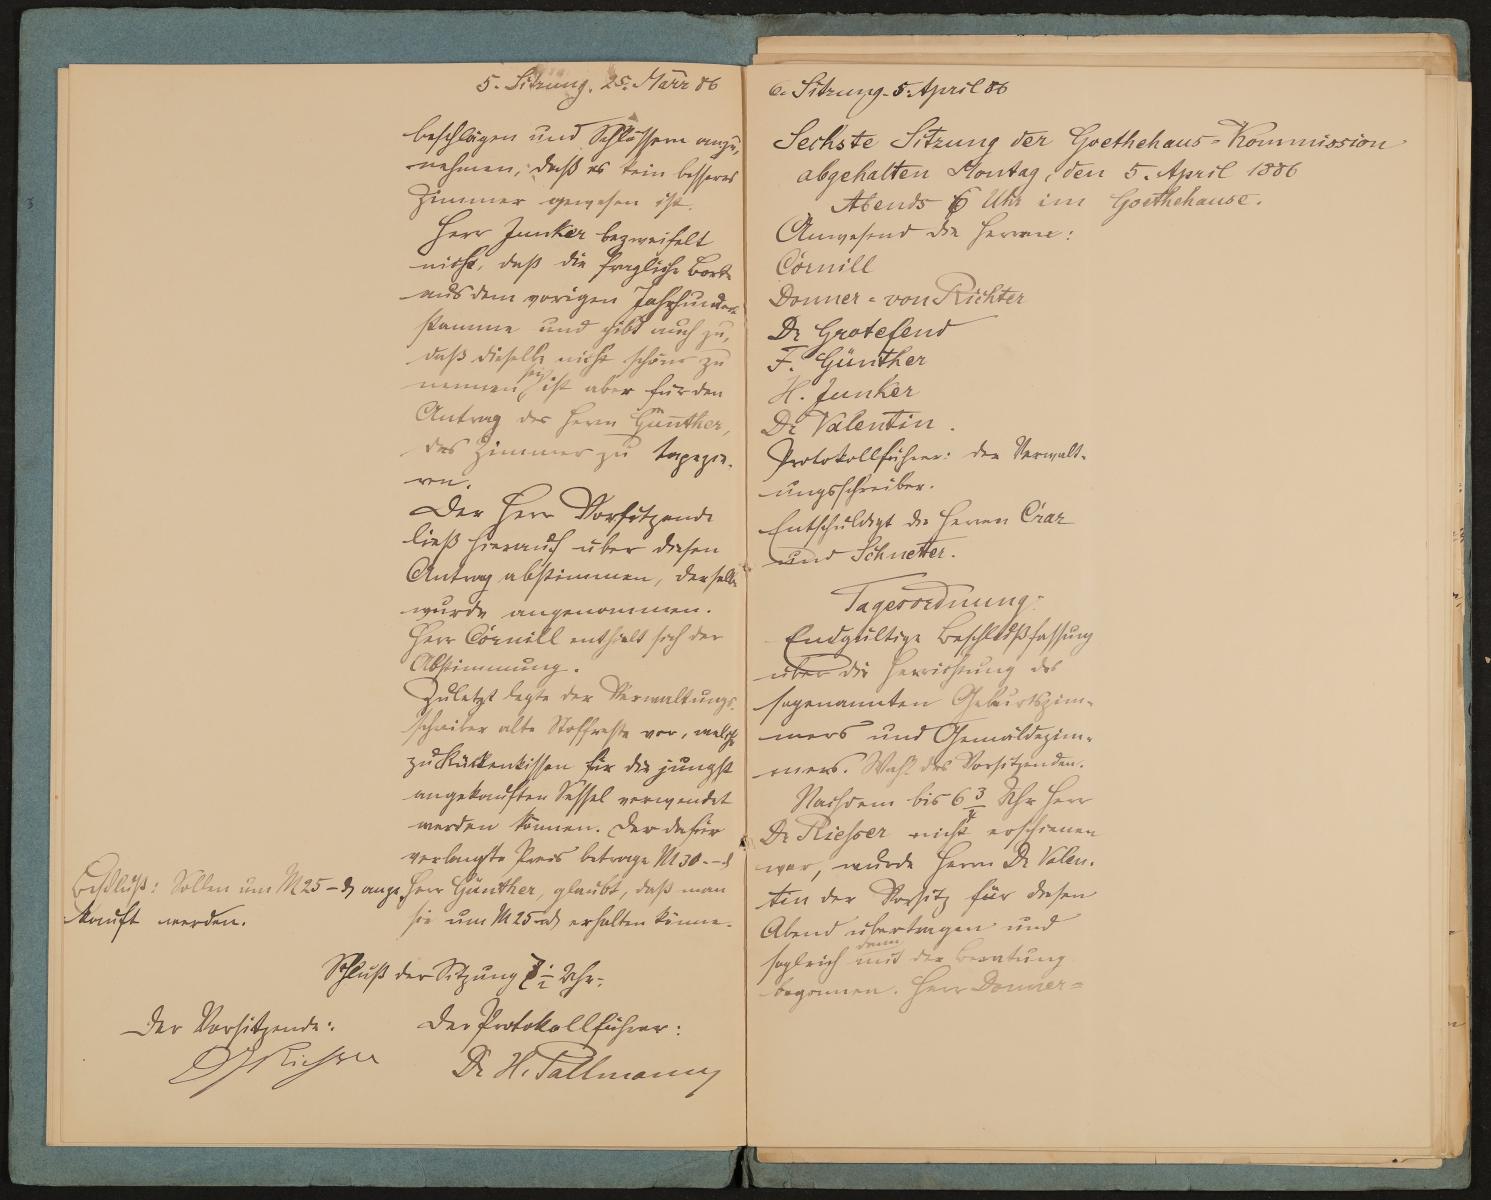 5. Sitzung. 25. März 86
beschlägen und Schlössern anzu-
nehmen, daß es kein besseres
Zimmer gewesen ist.
Herr Junker bezweifelt
nicht, daß die fragliche Borte
aus dem vorigen Jahrhundert
stamme und gibt auch zu,
daß dieselbe nicht schön zu
nennen sei, ist aber für den
Antrag des Herrn Günther,
das Zimmer zu tapezie-
ren.
Der Herr Vorsitzende
ließ hierauf über diesen
Antrag abstimmen, derselbe
wurde angenommen.
Herr Cornill enthielt sich der
Abstimmung.
Zuletzt legte der Verwaltungs-
schreiber alte Stoffreste vor, welche
zu Rückenkissen für die jüngst
angekauften Sessel verwendet
werden können. Der dafür
verlangte Preis betrage M 30.–
Herr Günther, glaubt, daß man
sie um M 25 – erhalten könne.
Beschluß: Sollen um M 25 – ange-
kauft werden.
Schluß der Sitzung Uhr.
Der Vorsitzende: Der Protokollführer:
Dr. H. Pallmann
6. Sitzung. 5. April 86
Sechste Sitzung der Goethehaus-Kommission
abgehalten Montag, den 5. April 1886
Abends 6 Uhr im Goethehause.
Anwesend die Herren:
Cornill
Donner-von Richter
Dr Grotefend
F. Günther
H. Junker
Dr Valentin.
Protokollführer: der Verwalt-
ungsschreiber.
Entschuldigt die Herren
und Schnetter.
Tagesordnung:
Endgültige Beschlußfassung
über die Herrichtung des
sogenannten Geburtszim-
mers und Gemäldezim-
mers. Wahl des Vorsitzenden.
Nachdem bis 6 3/4 Uhr Herr
Dr Riesser nicht erschienen
war, wurde Herrn Dr Valen-
tin der Vorsitz für diesen
Abend übertragen und
sogleich dann mit der Beratung
begonnen. Herr Donner-